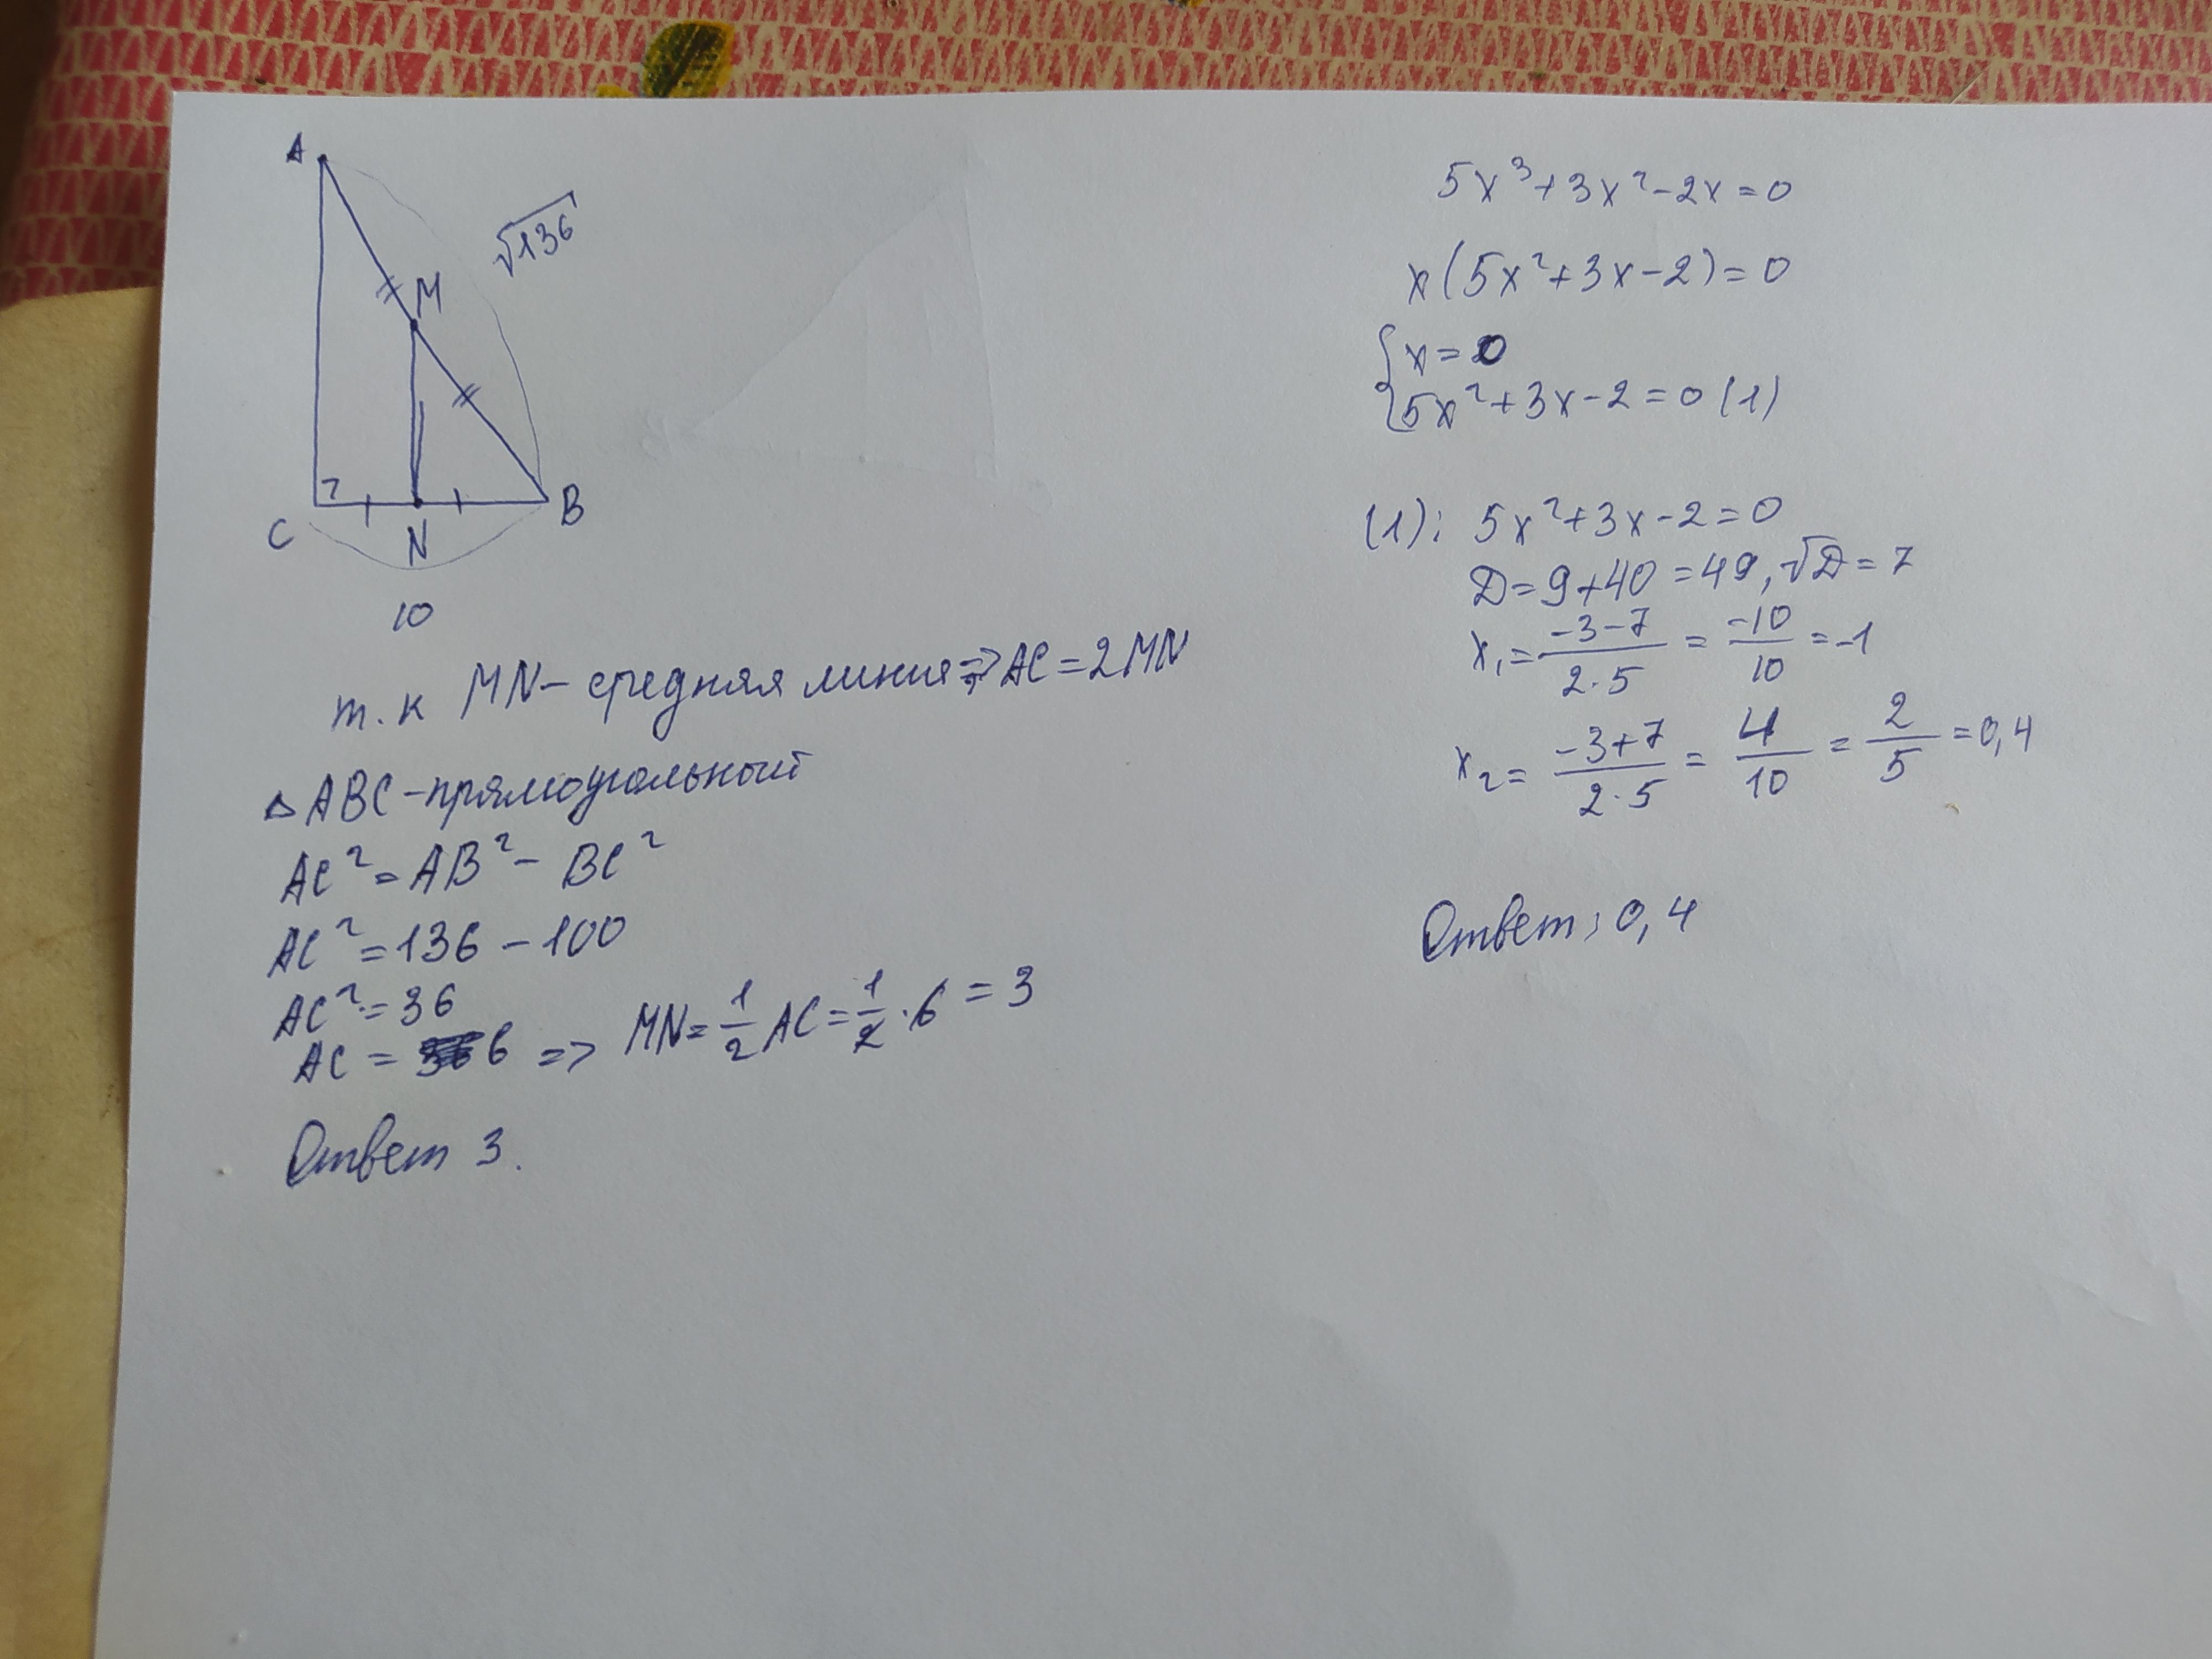 A
M
√136
C
N
B
10
т.к MN - средняя линия => AC = 2MN
△ABC - прямоугольный
AC² = AB² - BC²
AC² = 136 - 100
AC² = 36
AC = 6 => MN = 1/2 AC = 1/2 · 6 = 3
Ответ 3.
5x³ + 3x² - 2x = 0
x(5x² + 3x - 2) = 0
{ x = 0
5x² + 3x - 2 = 0 (1)
(1): 5x² + 3x - 2 = 0
D = 9 + 40 = 49, √D = 7
x₁ = (-3-7)/(2·5) = -10/10 = -1
x₂ = (-3+7)/(2·5) = 4/10 = 2/5 = 0,4
Ответ: 0,4